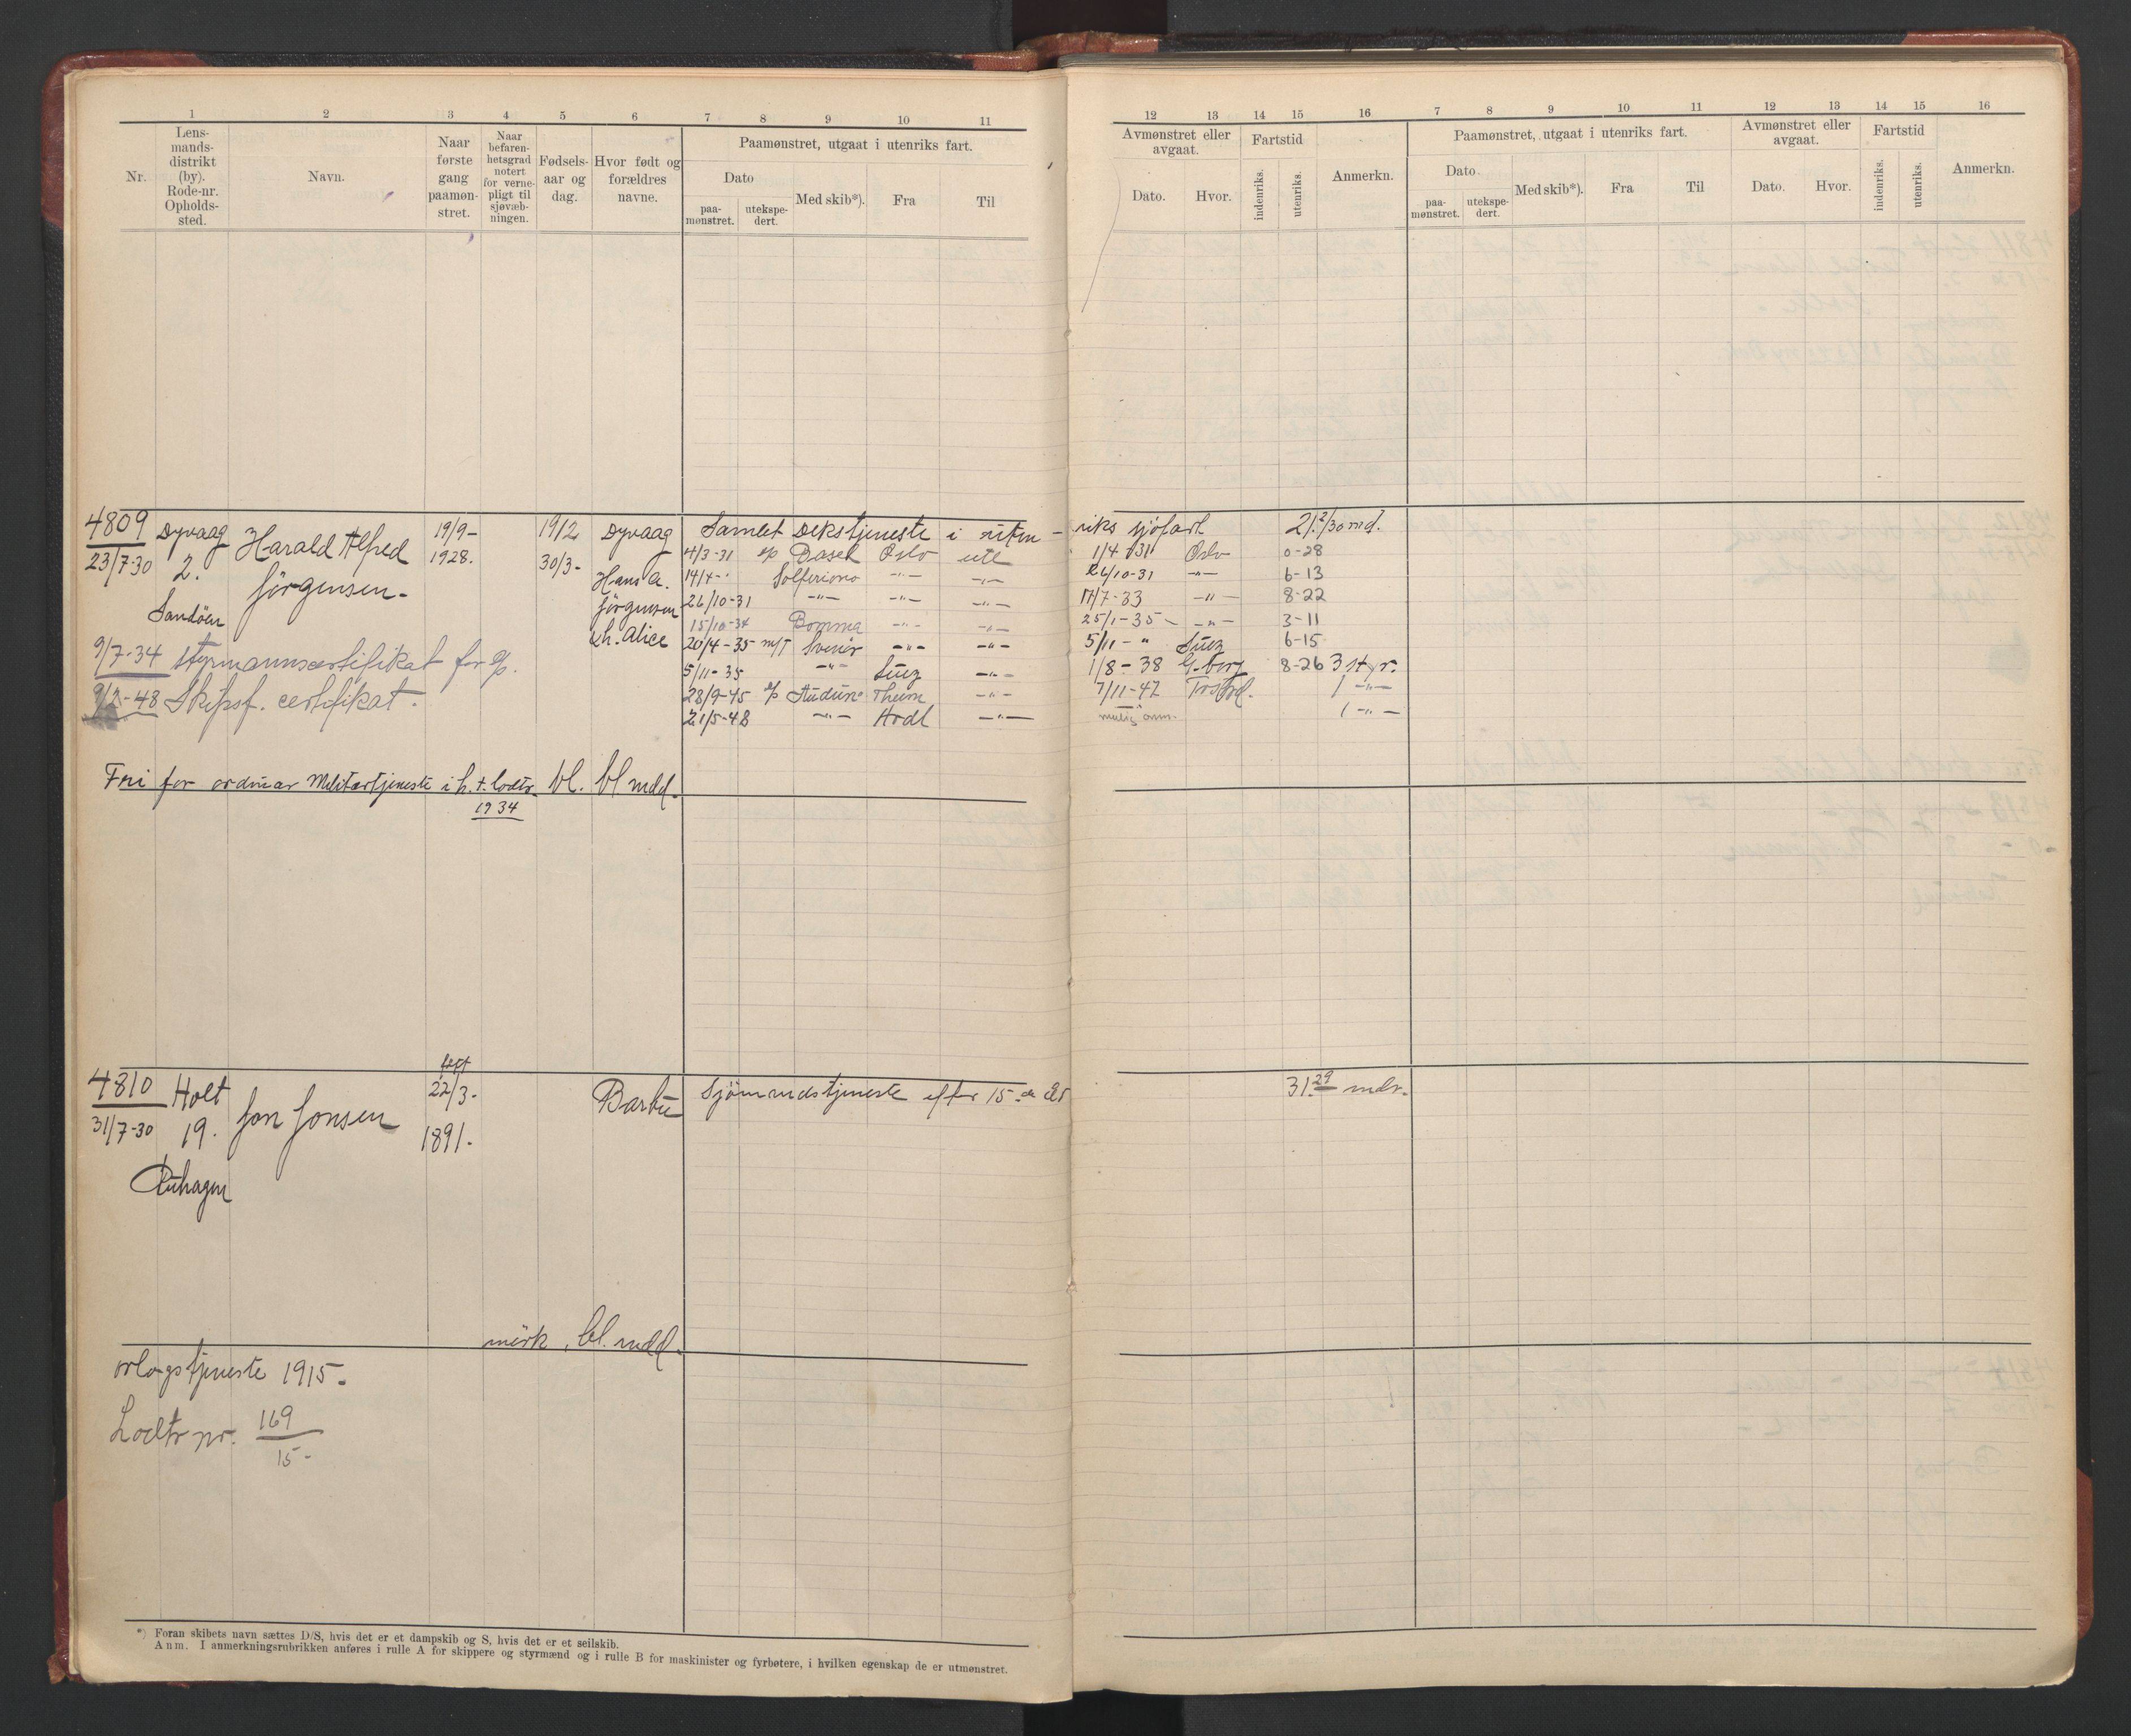 1 2 3 4 5 6 7 8 9 10 11
Nr.
Lens-
mands-
distrikt
(by).
Rode-nr.
Opholds-
sted.
Navn.
Naar
første
gang
paamøn-
stret.
Naar
befaren-
hetsgrad
notert
for verne-
pligt til
sjøvæb-
ningen.
Fødsels-
aar og
dag.
Hvor født og
forældres
navne.
Paamønstret, utgaat i utenriks fart.
Dato
paa-
mønstret.
utekspe-
dert.
Med skib*).
Fra
Til
12 13 14 15 16 7 8 9 10 11 12 13 14 15 16
Avmønstret eller
avgaat.
Dato.
Hvor.
Fartstid
indenriks.
utenriks.
Anmerkn.
Paamønstret, utgaat i utenriks fart.
Dato
paa-
mønstret.
utekspe-
dert.
Med skib*).
Fra
Til
Avmønstret eller
avgaat.
Dato.
Hvor.
Fartstid
indenriks.
utenriks.
Anmerkn.
4809 Dyvaag Harald Alfred 19/9- 1912 Dyvaag Samlet Dekstjeneste i uten-riks sjöfart 21.2/30 md.
23/7-30 2. Jörgensen- 1928. 30/3- Hans A. Jörgensen
Sandöen
4/3-31 Oslo ute 1/4 31 Oslo 0-28
14/4-" Solferiono -"- -"- 26/10-31 -"- 6-13
26/10-31 -"- -"- -"- 17/7-33 -"- 8-22
15/10-34 Bomma -"- -"- 25/1-35- -"- 3-11
20/4-35 m/T Svenör -"- -"- 5/11-" Suez 6-15
5/11-35 -"- Suez -"- 1/8-38 G.borg 8-26 3 styr.
28/9-45 -"- 7/11-47 1 -"-
21/5-48 -"- -"- 1 -"-
& h. Alice
9/7-34 styrmannscertifikat for
9/2-48 Skipsf. certifikat.
Fri for ordinær Militærtjeneste i h. t. lodtr. bl. bl mdd.
1934
4810 Holt Jon Jonsen 22/3- Barbu Sjömandstjeneste efter 15 de år 31.29 mdr.
31/7-30 19. 1891.
mörk, bl. mdd.
orlogstjeneste 1915-
Lodtr nr. 169
15-
*) Foran skibets navn sættes D/S, hvis det er et dampskib og S, hvis det er et seilskib.
Anm. I anmerkningsrubrikken anføres i rulle A for skippere og styrmænd og i rulle B for maskinister og fyrbøtere, i hvilken egenskap de er utmønstret.